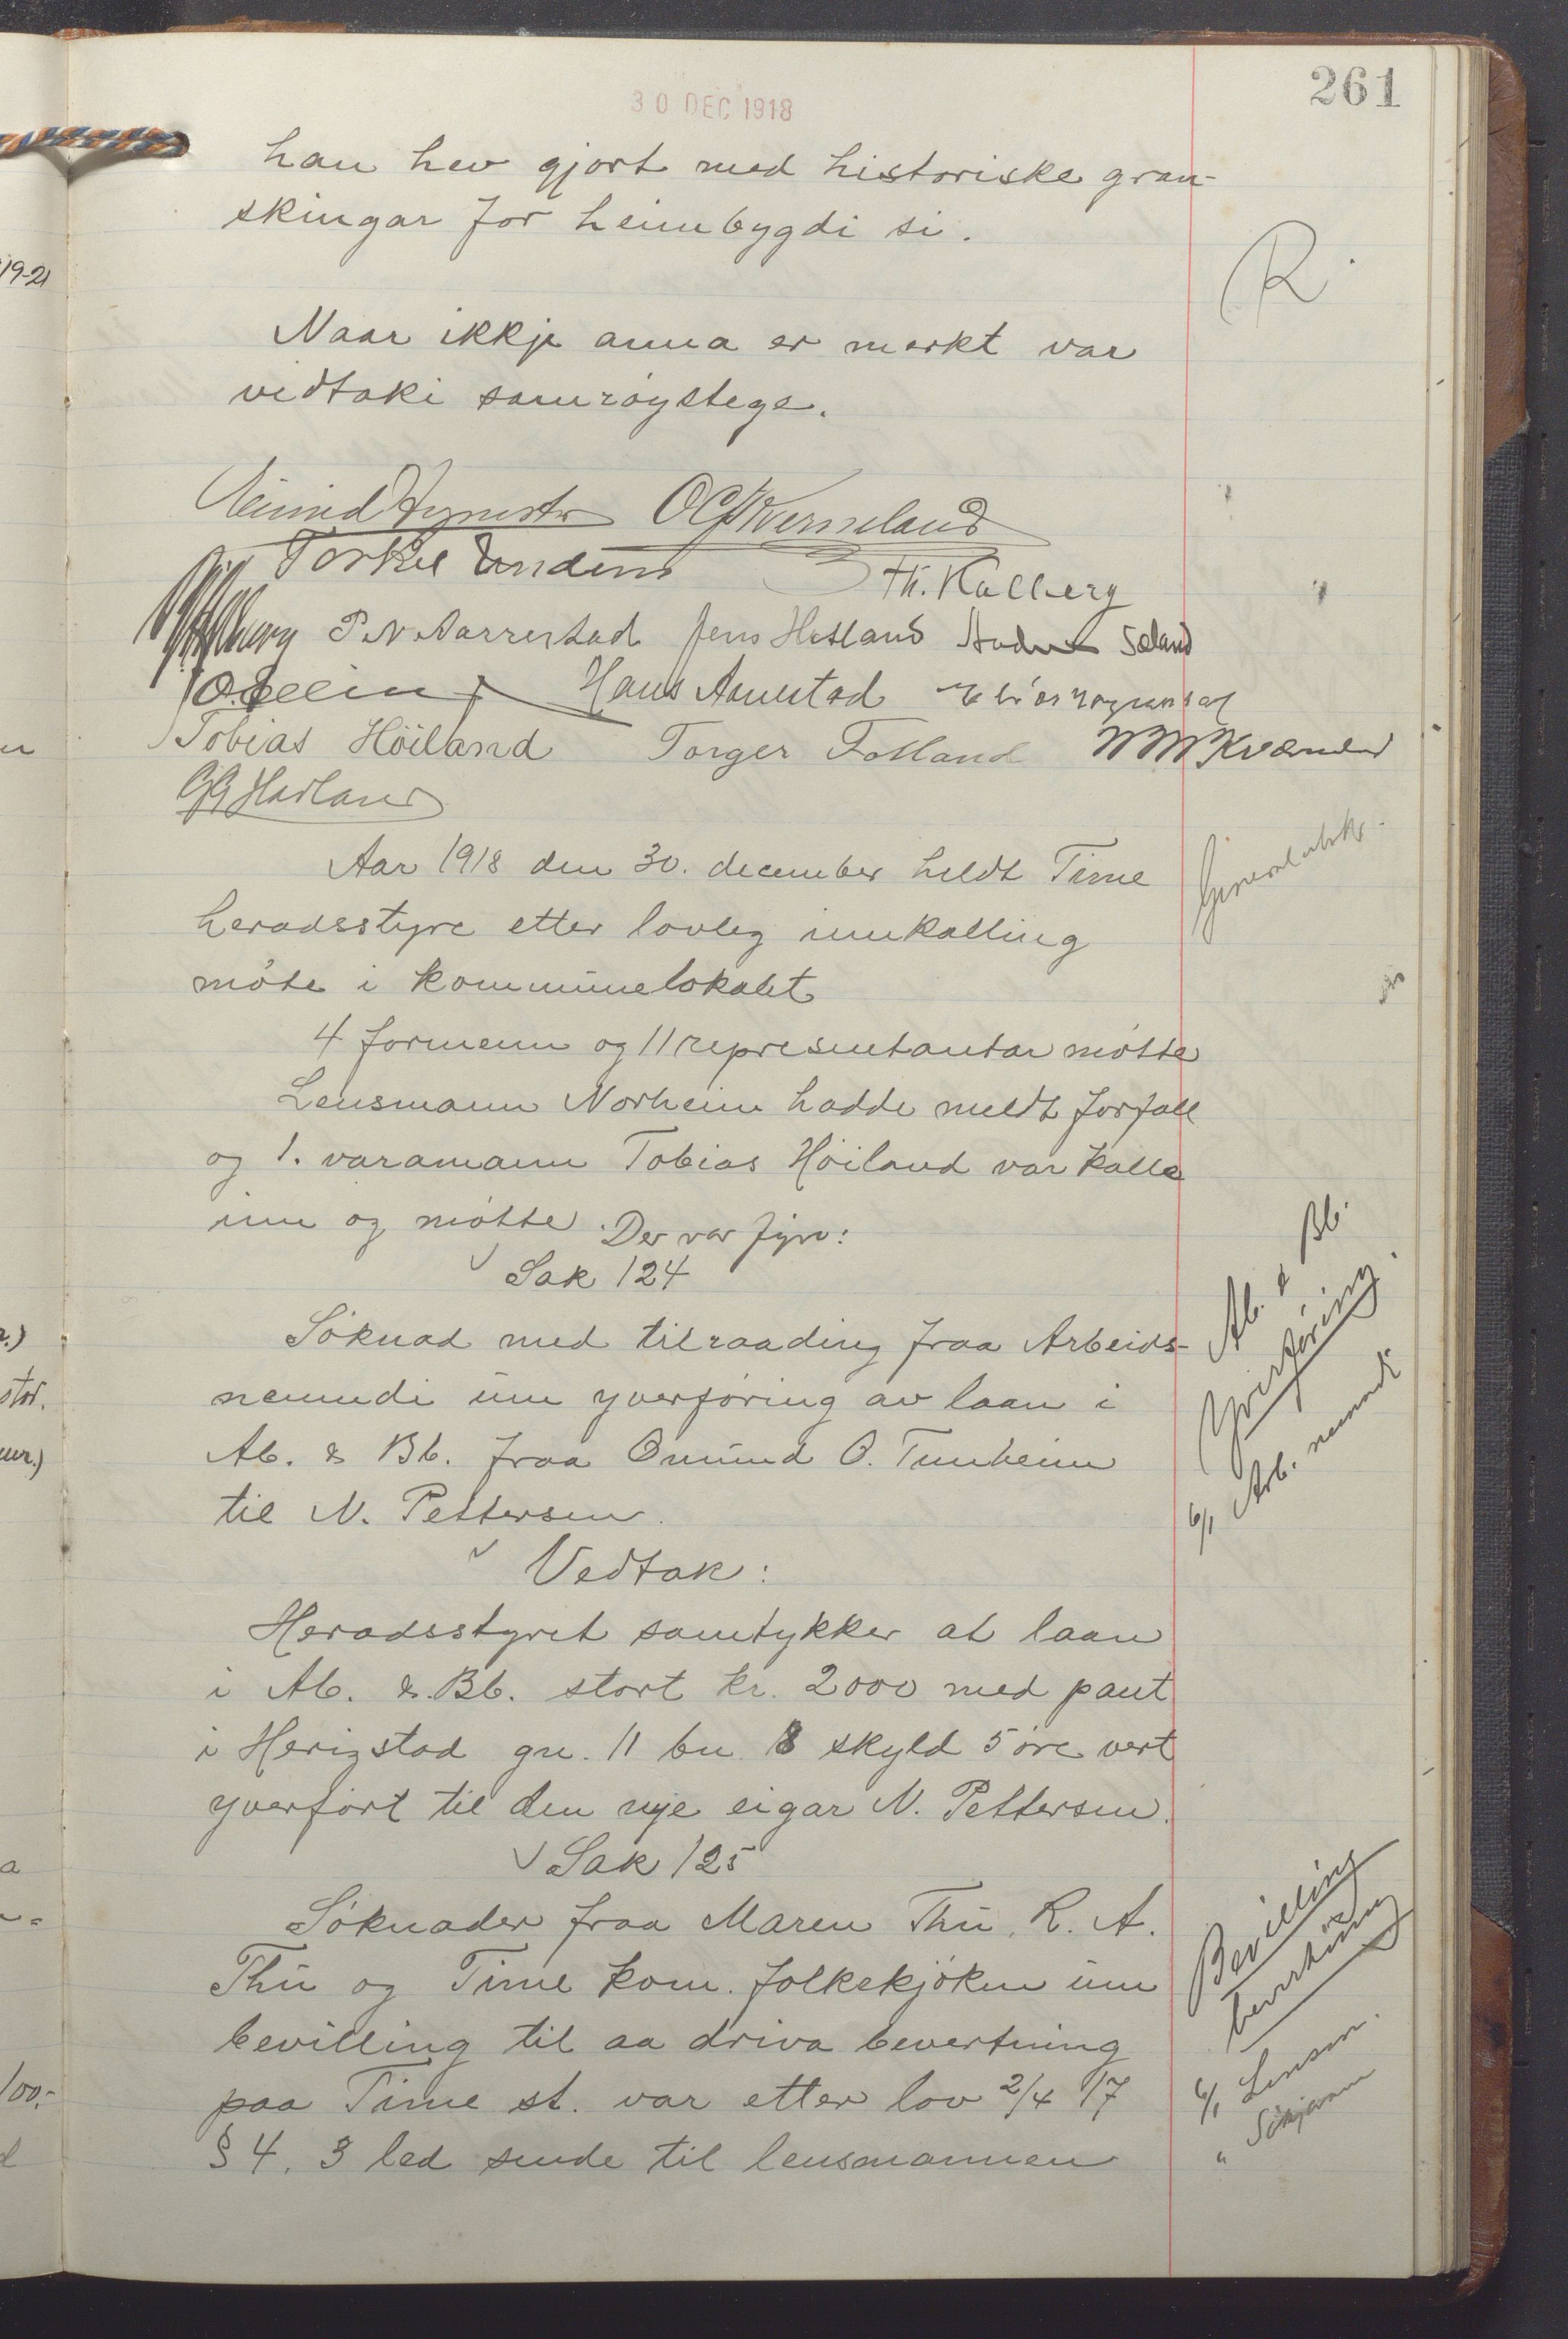 261
30 DEC 1918
han hev gjort med historiske gran-
skingar for heimbygdi si.
R.
Naar ikkje anna er merkt var
vedtaki samröystege.
O G Kverneland
Torkel
Th. Kalberg
P. N. Aarrestad Jens Hetland Andreas Sæland
Hans Aanestad
Tobias Höiland Torger Fotland Kvernland
G G Havland
Aar 1918 den 30. december heldt Time
heradsstyre etter lovleg innkalling
möte i kommunelokalet
4 formenn og 11 representantar mötte
Lensmann Norheim hadde meldt forfall
og 1. varamann Tobias Höiland var kalla
inn og mötte. Der var fyre:
Sak 124
Ab. & Bb.
Yverföring
6/1 Arb. nemndi
Söknad med tilraading fraa Arbeids-
nemndi um yverföring av laan i
Ab. & Bb. fraa Omund O. Tunheim
til N. Pettersen.
Vedtak:
Heradsstyret samtykker at laan
i Ab. & Bb. stort kr. 2000 med pant
i Herigstad gn. 11 bn. 8 skyld 5 öre vert
yverfört til den nye eigar N. Pettersen.
Sak 125
Bevilling
bevertning
6/1 Lensm.
" Sökjarane
Söknader fraa Maren Thu, R. A.
Thu og Time kom. folkekjöken um
bevilling til aa driva bevertning
paa Time st. var etter lov 2/4 17
§ 4. 3 led sende til lensmannen
19-21
stor.
100,-